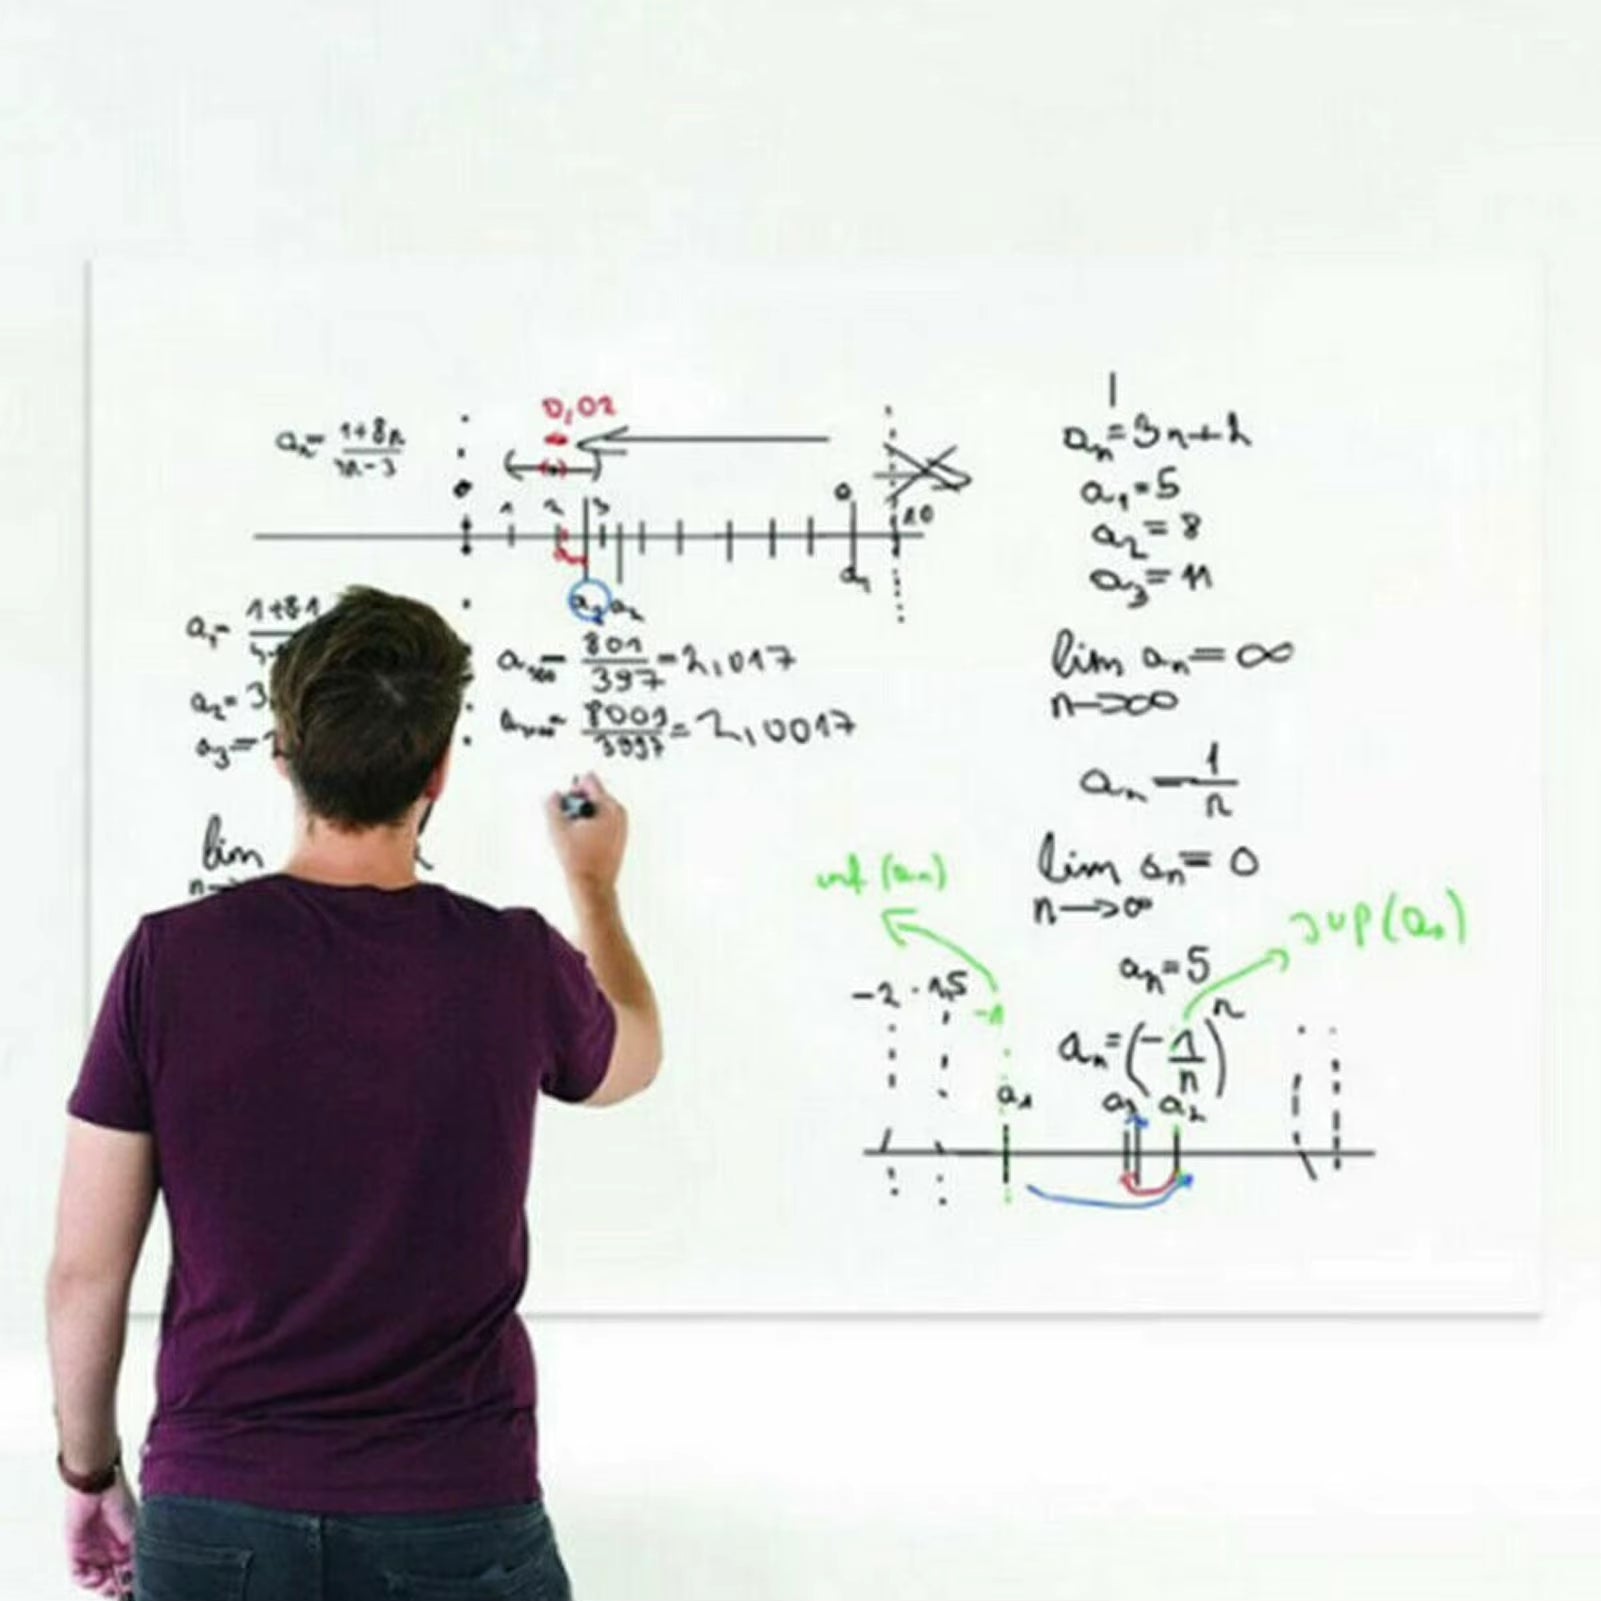 0,02
aₙ = (1+8n)/(4n-3)
1 2 3
10
a₁
a₃ a₂
a₁ = 1+8·1
a₁₀₀ = 801/397 = 2,017
a₂ = 3
a₁₀₀₀ = 8001/3997 = 2,0017
a₃ =
lim
n→
aₙ = 3n+2
a₁ = 5
a₂ = 8
a₃ = 11
lim aₙ = ∞
n→∞
aₙ = 1/n
lim aₙ = 0
n→∞
inf (aₙ)
sup (aₙ)
aₙ = 5
-2 -1,5
-1
aₙ = (-1/n)ⁿ
a₁ a₃ a₂